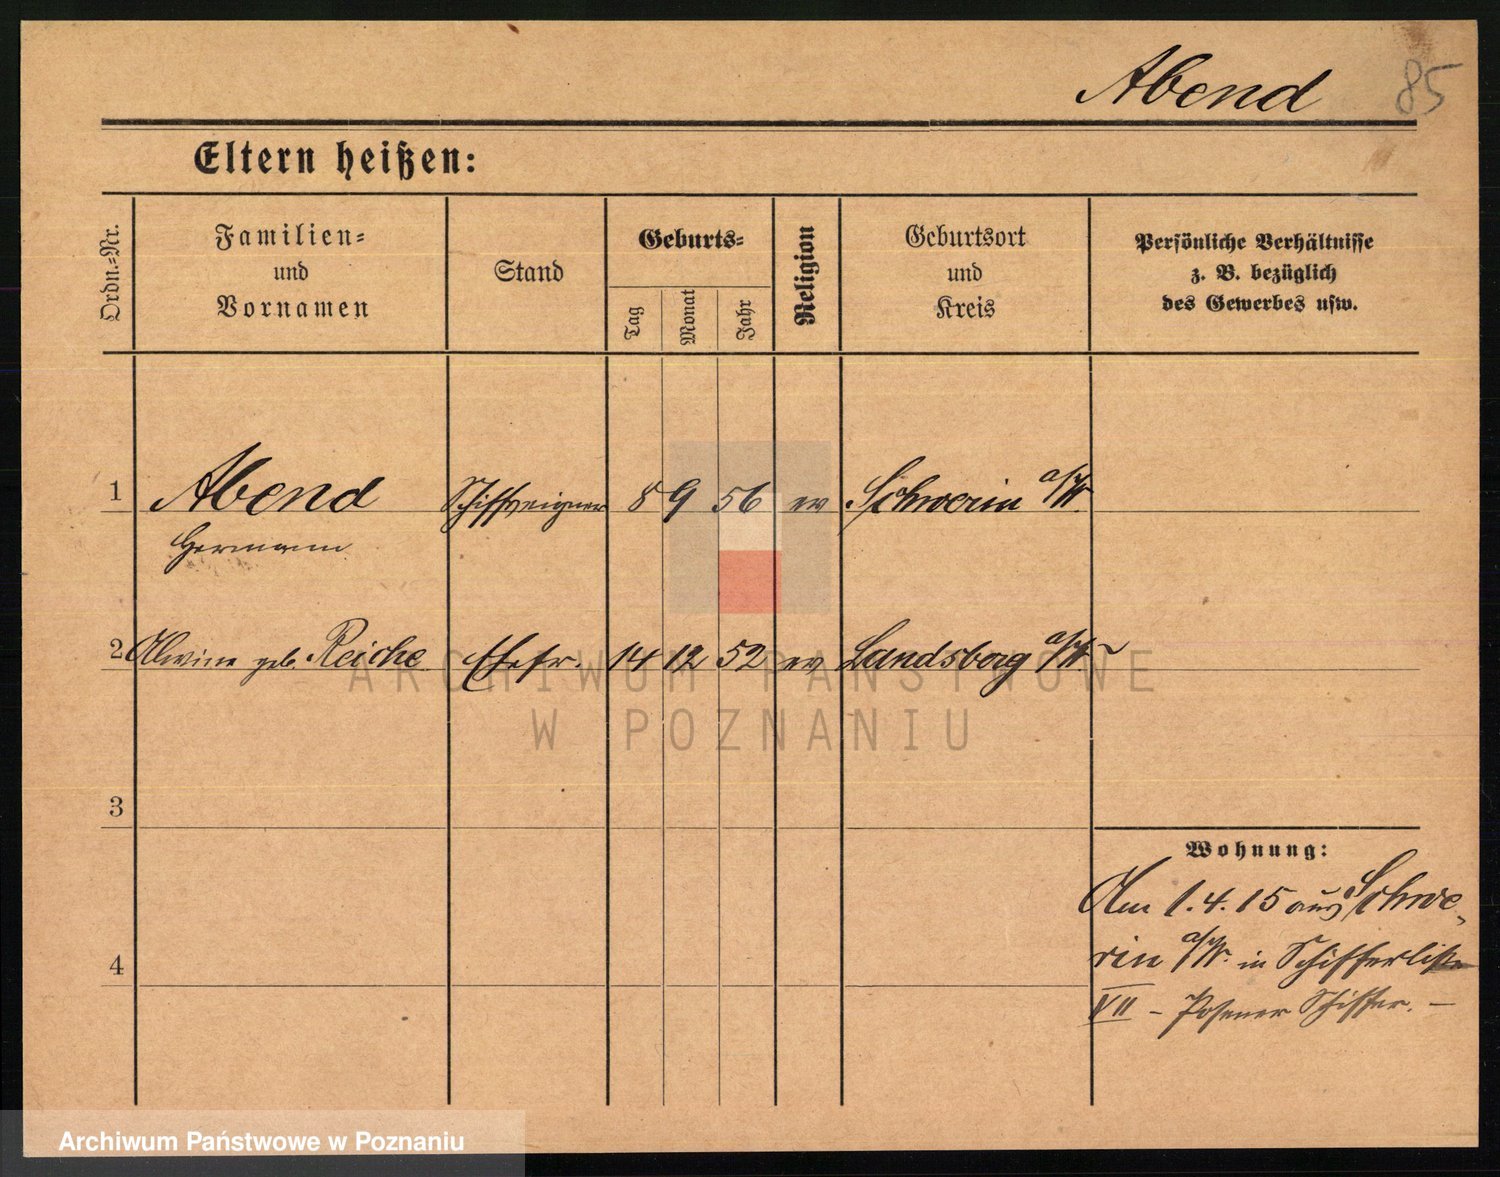 Abend 85
Eltern heißen:
Ordn.=Nr.
Familien=
und
Vornamen
Stand
Geburts=
Tag
Monat
Jahr
Religion
Geburtsort
und
Kreis
Persönliche Verhältnisse
z. B. bezüglich
des Gewerbes usw.
1 Abend Schiffseigner 8 9 56 ev Schwerin a/W.
Hermann
2 Alwine geb. Reiche Ehefr. 14 12 52 ev Landsberg a/W
ARCHIWUM PAŃSTWOWE
W POZNANIU
3
Wohnung:
Am 1.4.15 aus Schwe-
rin a/W. in Schifferliste
4
VII - Posener Schiffer. -
Archiwum Państwowe w Poznaniu